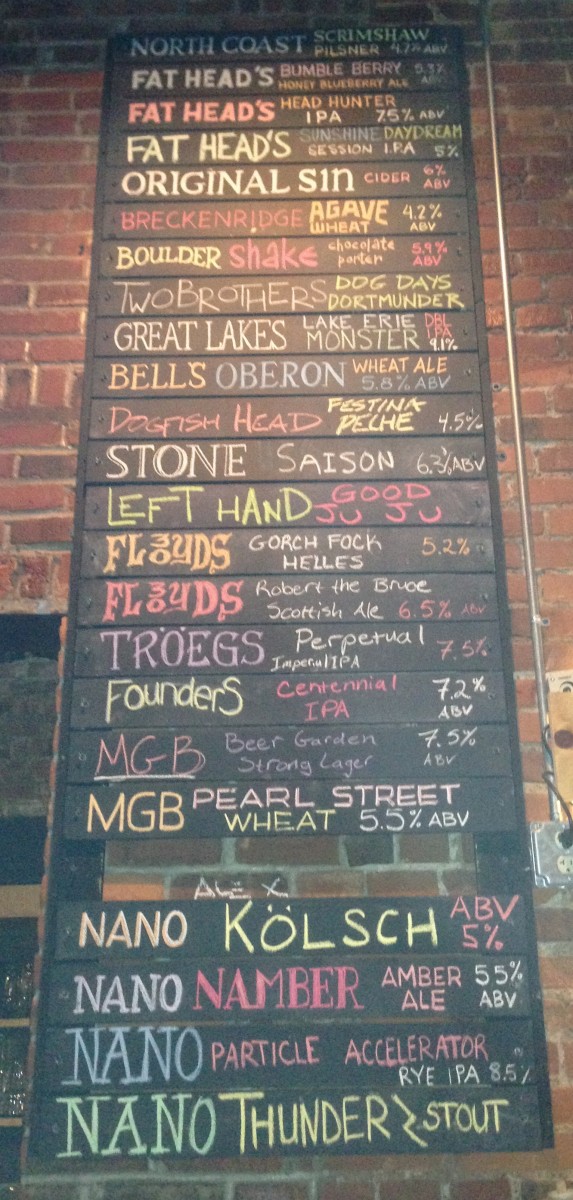 NORTH COAST SCRIMSHAW
PILSNER 4.7% ABV
FAT HEAD'S BUMBLE BERRY 5.3%
HONEY BLUEBERRY ALE ABV
FAT HEAD'S HEAD HUNTER
IPA 7.5% ABV
FAT HEAD'S SUNSHINE DAYDREAM
SESSION I.P.A 5%
ORIGINAL SIN CIDER 6%
ABV
BRECKENRIDGE AGAVE 4.2%
WHEAT ABV
BOULDER Shake chocolate 5.9%
porter ABV
TWO BROTHERS DOG DAYS
DORTMUNDER
GREAT LAKES LAKE ERIE DBL
MONSTER IPA
9.1%
BELL'S OBERON WHEAT ALE
5.8% ABV
DOGFISH HEAD FESTINA
PECHE 4.5%
STONE SAISON 6.3% ABV
LEFT HAND GOOD
JU JU
FLOYDS GORCH FOCK 5.2%
HELLES
FLOYDS Robert the Bruce
Scottish Ale 6.5% ABV
TRÖEGS Perpetual 7.5%
Imperial IPA
FOUNDERS Centennial 7.2%
IPA ABV
MGB Beer Garden 7.5%
Strong Lager ABV
MGB PEARL STREET
WHEAT 5.5% ABV
ALE X
NANO KÖLSCH ABV
5%
NANO NAMBER AMBER 5.5%
ALE ABV
NANO PARTICLE ACCELERATOR
RYE IPA 8.5%
NANO THUNDER STOUT